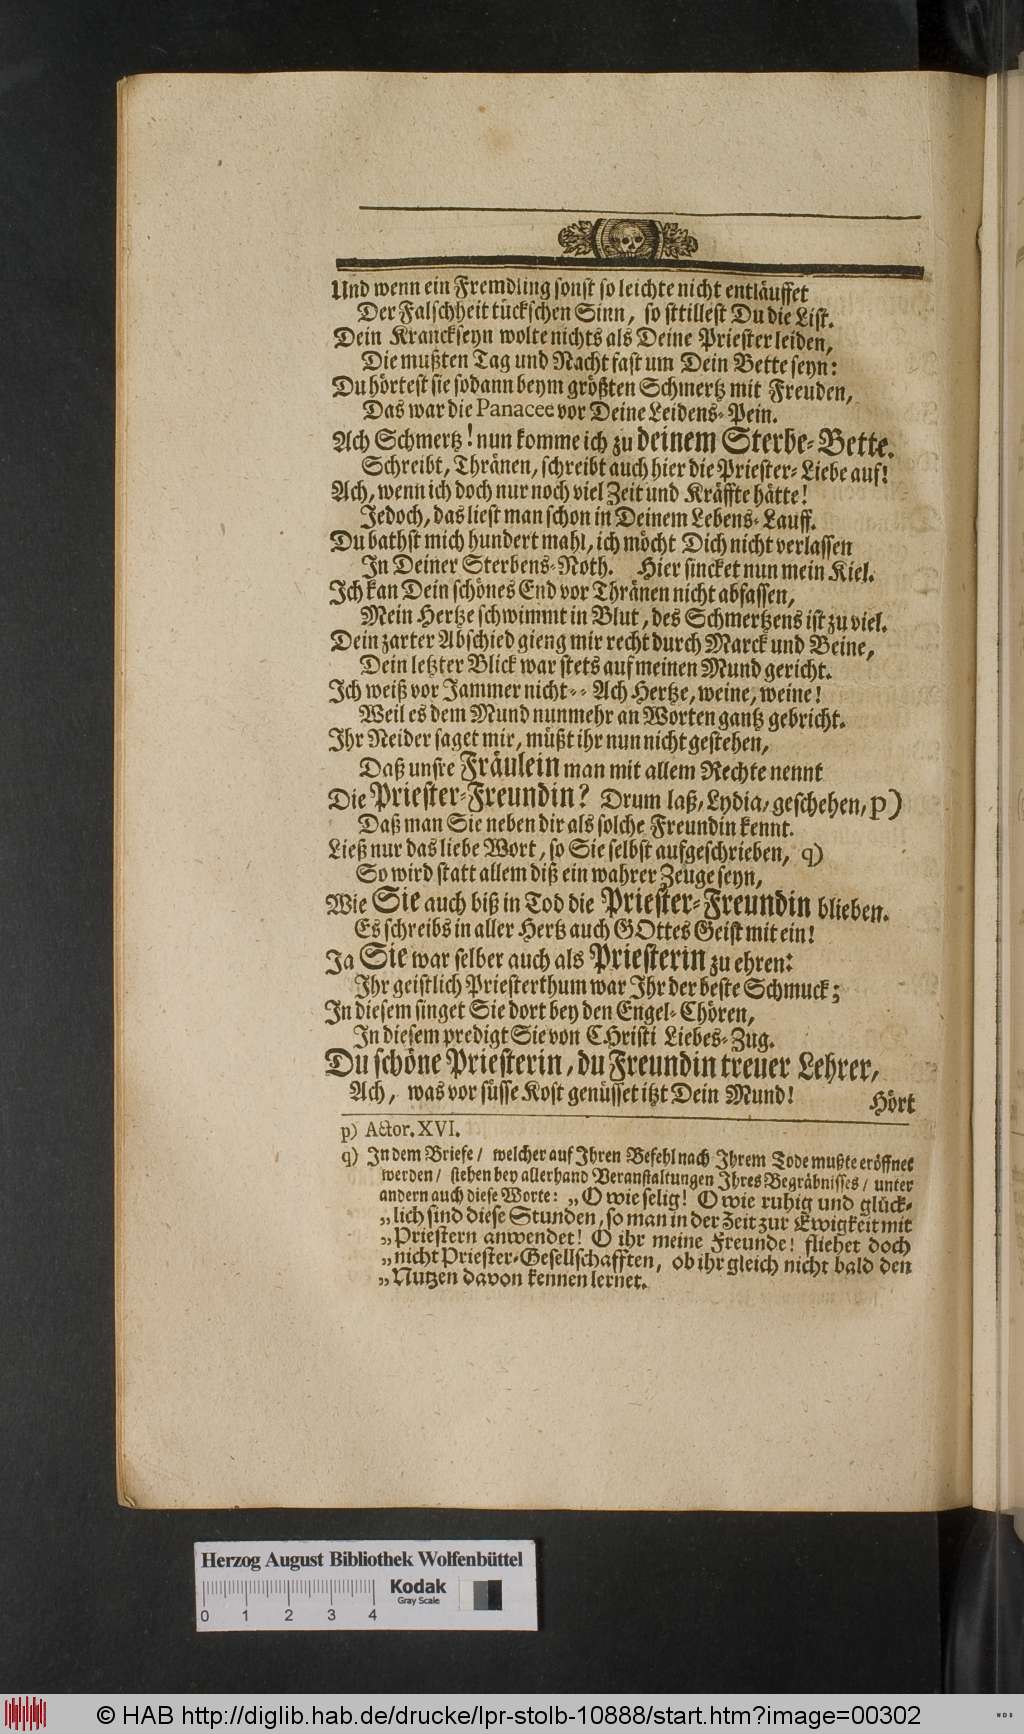 Und wenn ein Fremdling sonst so leichte nicht entläuffet
Der Falschheit tückschen Sinn, so sttillest Du die List.
Dein Kranckseyn wolte nichts als Deine Priester leiden,
Die mußten Tag und Nacht fast um Dein Bette seyn:
Du hörtest sie sodann beym größten Schmertz mit Freuden,
Das war die Panacee vor Deine Leidens-Pein.
Ach Schmertz! nun komme ich zu deinem Sterbe-Bette.
Schreibt, Thränen, schreibt auch hier die Priester-Liebe auf!
Ach, wenn ich doch nur noch viel Zeit und Kräffte hätte!
Jedoch, das liest man schon in Deinem Lebens-Lauff.
Du bathst mich hundert mahl, ich möcht Dich nicht verlassen
In Deiner Sterbens-Noth. Hier sincket nun mein Kiel.
Ich kan Dein schönes End vor Thränen nicht abfassen,
Mein Hertze schwimmt in Blut, des Schmertzens ist zu viel.
Dein zarter Abschied gieng mir recht durch Marck und Beine,
Dein letzter Blick war stets auf meinen Mund gericht.
Ich weiß vor Jammer nicht-- Ach Hertze, weine, weine!
Weil es dem Mund nunmehr an Worten gantz gebricht.
Ihr Neider saget mir, müßt ihr nun nicht gestehen,
Daß unsre Fräulein man mit allem Rechte nennt
Die Priester-Freundin? Drum laß, Lydia, geschehen, p)
Daß man Sie neben dir als solche Freundin kennt.
Ließ nur das liebe Wort, so Sie selbst aufgeschrieben, q)
So wird statt allem diß ein wahrer Zeuge seyn,
Wie Sie auch biß in Tod die Priester-Freundin blieben.
Es schreibs in aller Hertz auch GOttes Geist mit ein!
Ja Sie war selber auch als Priesterin zu ehren:
Ihr geistlich Priesterthum war Ihr der beste Schmuck;
In diesem singet Sie dort bey den Engel-Chören,
In diesem predigt Sie von CHristi Liebes-Zug.
Du schöne Priesterin, du Freundin treuer Lehrer,
Ach, was vor süsse Kost genüsset itzt Dein Mund!
Hört
p) Actor. XVI.
q) In dem Briefe / welcher auf Ihren Befehl nach Ihrem Tode mußte eröffnet
werden / stehen bey allerhand Veranstaltungen Ihres Begräbnisses / unter
andern auch diese Worte: „O wie selig! O wie ruhig und glück-
„lich sind diese Stunden, so man in der Zeit zur Ewigkeit mit
„Priestern anwendet! O ihr meine Freunde! fliehet doch
„nicht Priester-Gesellschafften, ob ihr gleich nicht bald den
„Nutzen davon kennen lernet.
Herzog August Bibliothek Wolfenbüttel
Kodak
Gray Scale
0 1 2 3 4
© HAB http://diglib.hab.de/drucke/lpr-stolb-10888/start.htm?image=00302